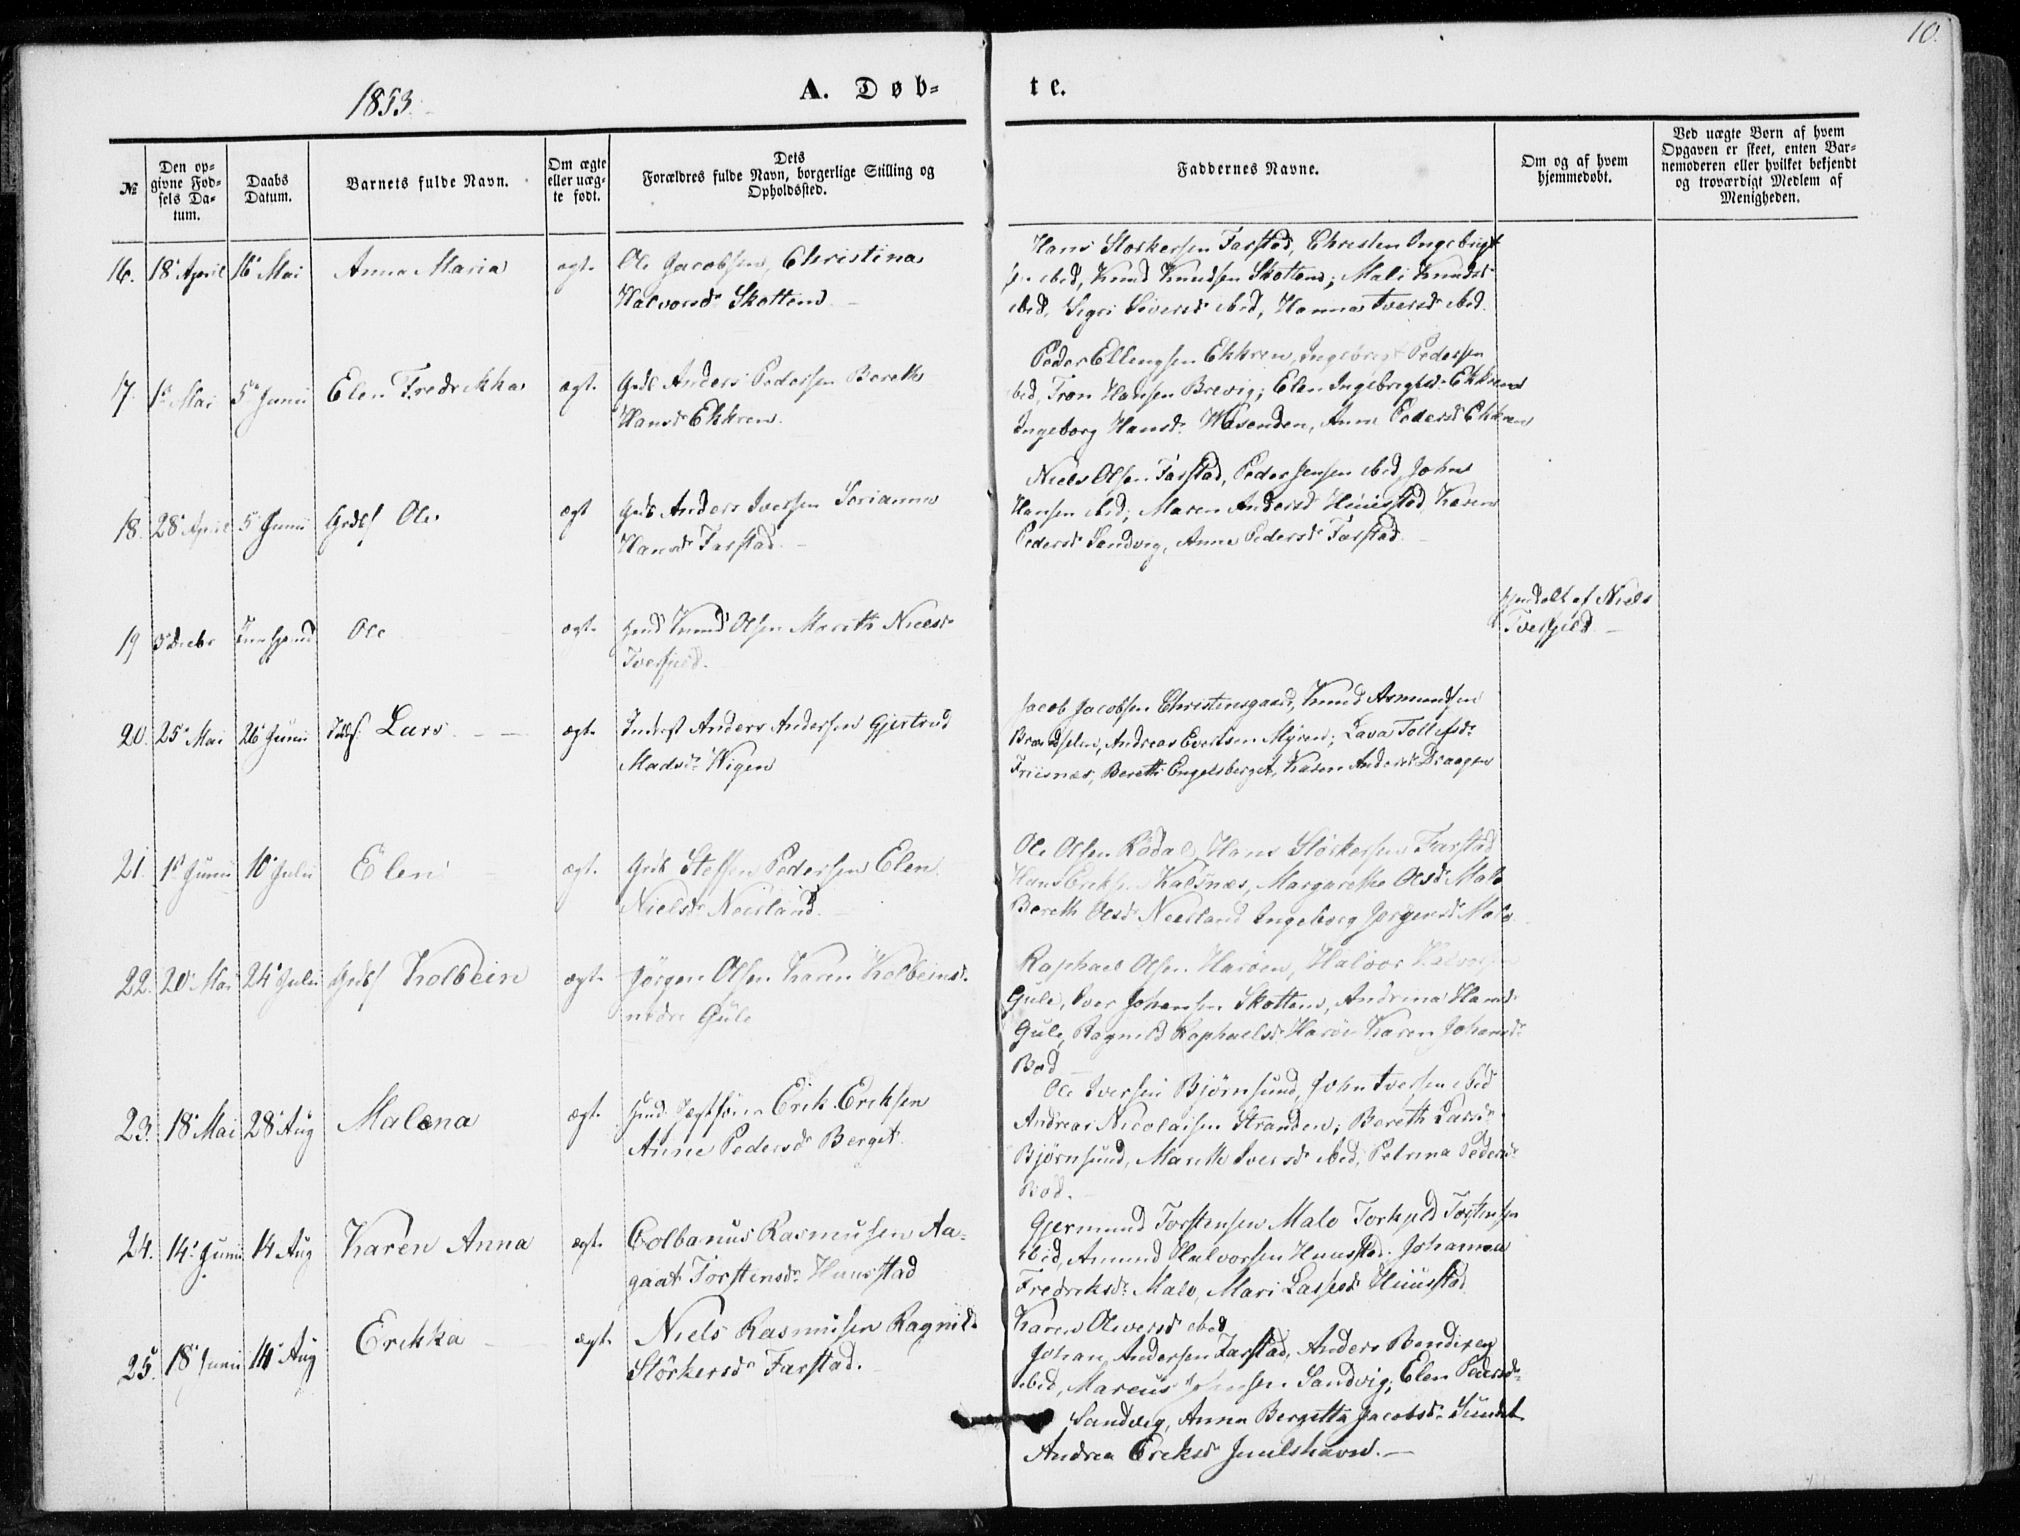 10.
1853.
A. Døb=
te.
№
Den op-
givne Fød-
sels Da-
tum.
Daabs
Datum.
Barnets fulde Navn.
Om ægte
eller uæg-
te født.
Dets
Forældres fulde Navn, borgerlige Stilling og
Opholdssted.
Faddernes Navne.
Om og af hvem
hjemmedøbt.
Ved uægte Børn af hvem
Opgaven er skeet, enten Bar-
nemoderen eller hvilket bekjendt
og troværdigt Medlem af
Menigheden.
16. 18 April 16 Mai Anna Maria ægt. Ole Jacobsen, Christina
Halvorsdr Skotten
Hans Storkersen Farstad, Christen Ingebrigt
sen ibid, Knud Knudsen Skotten; Mali Knudsdr
ibid, Sigri Siversdr ibid, Hanna Iversdr ibid.
17. 1 Mai 5 Junii Elen Fredrikka ægt. Anders Pedersen Bereth
Hansdr Ekkren.
Peder Ellengsen Ekkren, Ingebrigt Pedersen
ibid, Tron Hansen Brevig; Elen Ingebrigtsdr Ekkren
Ingeborg Hansdr, Anne Pedersdr Ekkren
18. 28 April 5 Junii Ole ægt Anders Iversen Sorianna
Hansdr Farstad.
Niels Olsen Farstad, Peder Jensen ibid, John
Hansen ibid; Maren Andersdr Huustad, Karen
Pedersdr Sandvig, Anne Pedersdr Farstad.
19 Ole ægt. Knud Olsen Marith Nielsdr
Tverfjeld.
af Niels
Tverfjeld.
20. 25 Mai 26 Junii Lars ægt. Anders Andersen Gjertrud
Madsdr Wigen
Jacob Jacobsen Christensgaard, Knud Asmundsen
Andreas Evertsen Myren; Lava Tollefsdr
Friisnæs, Bereth Engelsberget, Karen Andersdr Draagen
21. 1 Junii 10 Julii Elen ægt. Steffen Pedersen Elen
Nielsdr Neerland.
Ole Olsen Rødal, Hans Størkersen Farstad
Hans Eriksen, Margarethe Olsdr Malo
Bereth Olsdr Neerland Ingeborg Jørgensdr Malo
22. 20 Mai 24 Julii Kolbein ægt. Jørgen Olsen Karen Kolbeinsdr
nedre Gule
Raphael Olsen Harøen, Halvor Halvorsen
Gule, Iver Johansen Skotten, Andrina Hansdr
Gule, Ragnild Raphaelsdr Harøe Karen Johansdr
Bod
23. 18 Mai 28 Aug Malena ægt. Erik Eriksen
Anne Pedersdr Berget.
Ole Iversen Bjørnsund, John Iversen ibid
Andreas Nicolaisen Stranden; Bereth Larsdr
Bjørnsund, Marith Iversdr ibid, Petrina Pedersdr
Bod.
24. 14 Junii 14 Aug Karen Anna ægt. Colbanus Rasmussen Aa-
gaat Torstensdr Huustad
Gjermund Torstensen Malo Torkjeld Torstensen
ibid, Amund Halvorsen Huustad. Johanna
Fredriksdr Malo, Mari Huustad
Karen Oliversdr ibid
25. 18 Junii 14 Aug Erikka ægt. Niels Rasmussen Ragnild
Störkersdr Farstad.
Johan Andersen Farstad, Anders Bendixen
ibid, Marcus Sandvig; Elen Pedersdr
Sandvig, Anna Bergitta Jacobsdr Sundet
Andrea Eriksdr Juulshavn.